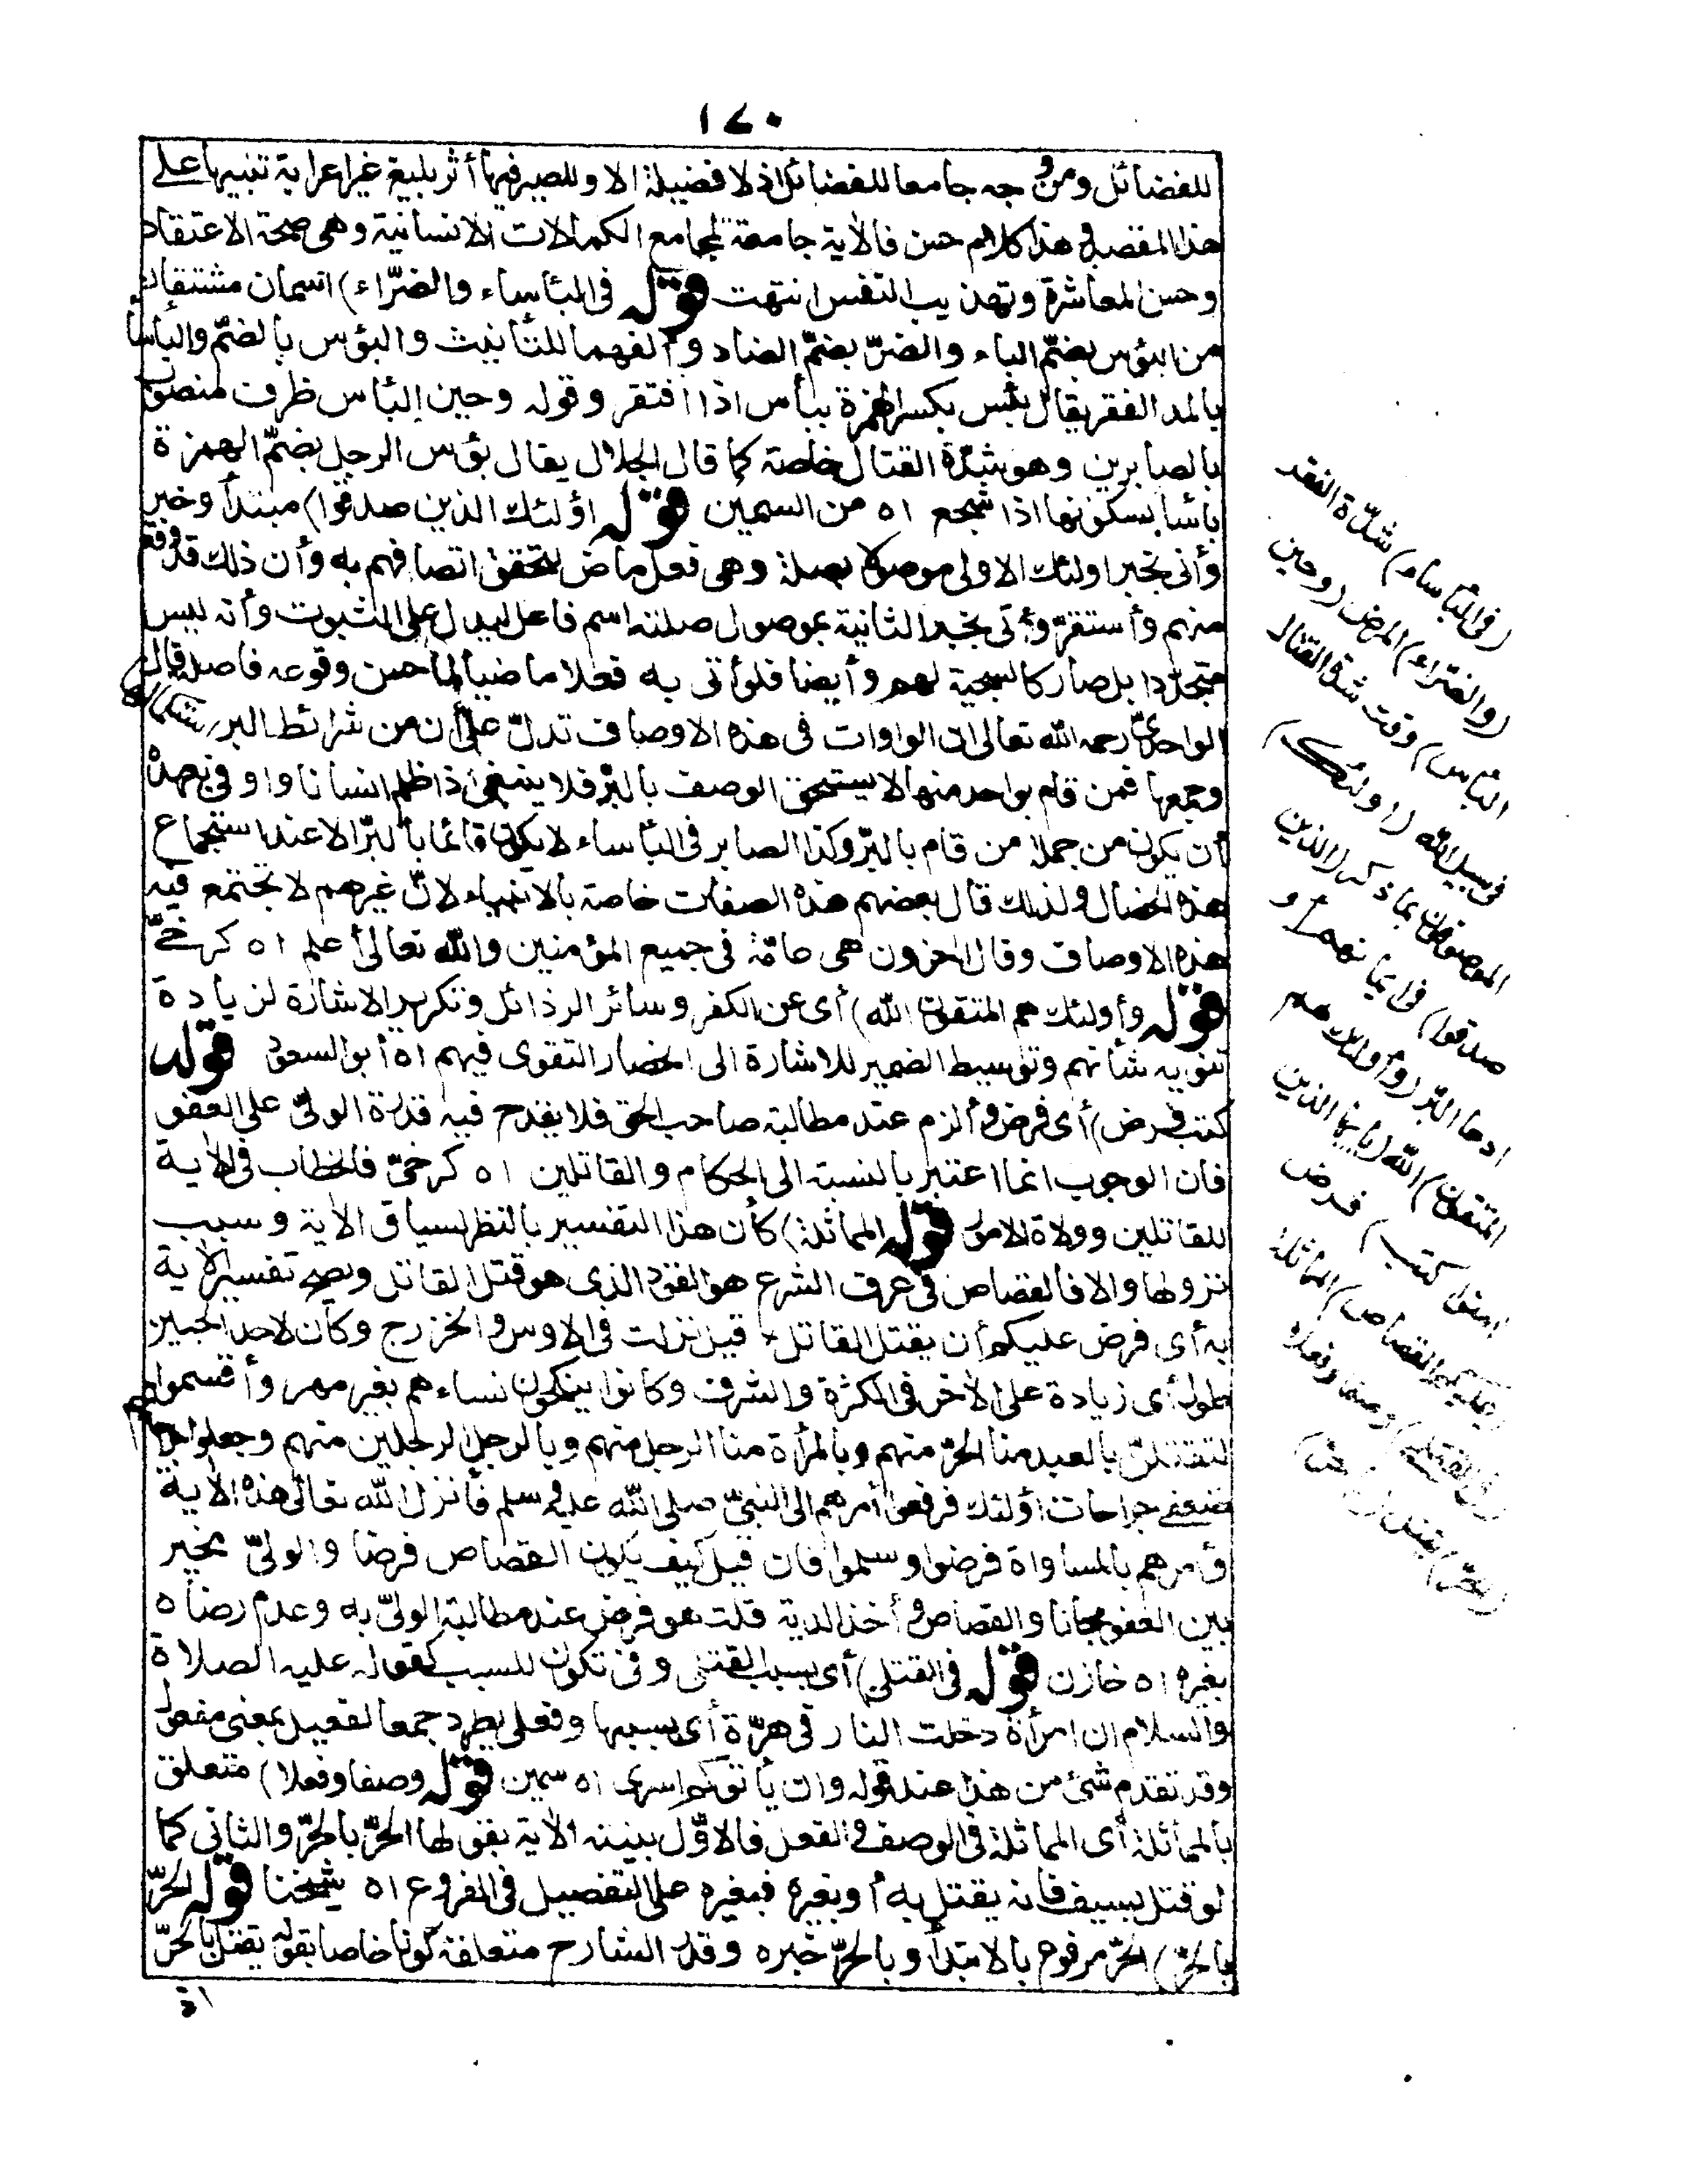 ١٤٠
للفضائل ومن وجه جامعا للفضائل اذ لا فضيلة الا وللصبر فيها أثر بليغ غير اعرابه تنبيها على
هذا المقصد وهذا كلام حسن فالآية جامعة لمجامع الكمالات الانسانية وهي صحة الاعتقاد
وحسن المعاشرة وتهذيب النفس انتهت قوله في البأساء والضراء) اسمان مشتقان
من البؤس بضم الباء والضر بضم الضاد وألفهما للتأنيث والبؤس بالضم والبأساء
بالمد الفقر يقال بئس بكسر الهمزة يبأس اذا افتقر وقوله وحين البأس ظرف منصوب
بالصابرين وهو شدة القتال خاصة كما قال الجلال يقال بؤس الرجل بضم الهمزة
بأسا بسكونها اذا شجع اه من السمين قوله اولئك الذين صدقوا) مبتدأ وخبر
وأتى بخبر اولئك الاولى موصولا بصلة وهي فعل ماض لتحقق اتصافهم به وأن ذلك قد وقع
منهم وأستقر وأتى بخبر الثانية بموصول صلته اسم فاعل ليدل على الثبوت وأنه ليس
متجددا بل صار كالسجية لهم وأيضا فلو أتى به فعلا ماضيا لما حسن وقوعه فاصلة قال
الواحدى رحمه الله تعالى ان الواوات في هذه الاوصاف تدل على أن من شرائط البر استكمالها
وجمعها فمن قام بواحد منها لا يستحق الوصف بالبر فلا ينبغى اذا ظلم انسانا واوفى بعهده
أن يكون من جملة من قام بالبر وكذا الصابر في البأساء لا يكون قائما بالبر الا عند استجماع
هذه الخصال ولذلك قال بعضهم هذه الصفات خاصة بالانبياء لان غيرهم لا تجتمع فيه
هذه الاوصاف وقال اخرون هى عامة فى جميع المؤمنين والله تعالى أعلم اه كرخى
قوله وأولئك هم المتقون الله) أى عن الكفر وسائر الرذائل وتكرير الاشارة لزيادة
تنويه شأنهم وتوسيط الضمير للاشارة الى انحصار التقوى فيهم اه أبو السعود قوله
كتب فرض) أى فرض وألزم عند مطالبة صاحب الحق فلا يقدح فيه قدرة الولى على العفو
فان الوجوب انما اعتبر بالنسبة الى الحكام والقاتلين اه كرخى فالخطاب فى الآية
للقاتلين وولاة الامور قوله المماثلة) كأن هذا التفسير بالنظر لسياق الآية وسبب
نزولها والا فالقصاص فى عرف الشرع هو القود الذى هو قتل القاتل ويصح تفسير الآية
به أى فرض عليكم أن يقتل القاتل قيل نزلت فى الاوس والخزرج وكان لاحد الحيين
طول أى زيادة على الآخر فى الكثرة والشرف وكانوا ينكحون نساءهم بغير مهر وأقسموا
لنقتلن بالعبد منا الحر منهم وبالمرأة منا الرجل منهم وبالرجل الرجلين منهم وجعلوا جراحاتهم
ضعفى جراحات أولئك فرفعوا أمرهم الى النبي صلى الله عليه وسلم فأنزل الله تعالى هذه الآية
وأمرهم بالمساواة فرضوا وسلموا فان قيل كيف يكون القصاص فرضا والولى مخير
بين العفو مجانا والقصاص وأخذ الدية قلت هو فرض عند مطالبة الولى به وعدم رضاه
بغيره اه خازن قوله فى القتلى) أى بسبب القتلى وفى تكون للسبب كقوله عليه الصلاة
والسلام ان امرأة دخلت النار فى هرة أى بسببها وفعلى يطرد جمعا لفعيل بمعنى مفعول
وقد تقدم شئ من هذا عند قوله وان يأتوكم اسرى اه سمين قوله وصفا وفعلا) متعلق
بالمماثلة أى المماثلة فى الوصف والفعل فالاول بينته الآية بقولها الحر بالحر والثانى كما
لو قتل بسيف فانه يقتل به أو بغيره فبغيره على التفصيل فى الفروع اه شيخنا قوله الحر
بالحر) الحر مرفوع بالابتدأ وبالحر خبره وقدر الشارح متعلقه كونا خاصا بقوله يقتل بالحر
(فى البأساء) شدة الفقر
(والضراء) المرض (وحين
البأس) وقت شدة القتال
فى سبيل الله (اولئك)
الموصوفون بما ذكر (الذين
صدقوا) فى ايمانهم أو
ادعاء البر (وأولئك هم
المتقون) الله (يا أيها الذين
امنوا كتب) فرض
(عليكم القصاص) المماثلة
(فى القتلى) وصفا وفعلا
(الحر) يقتل (بالحر)